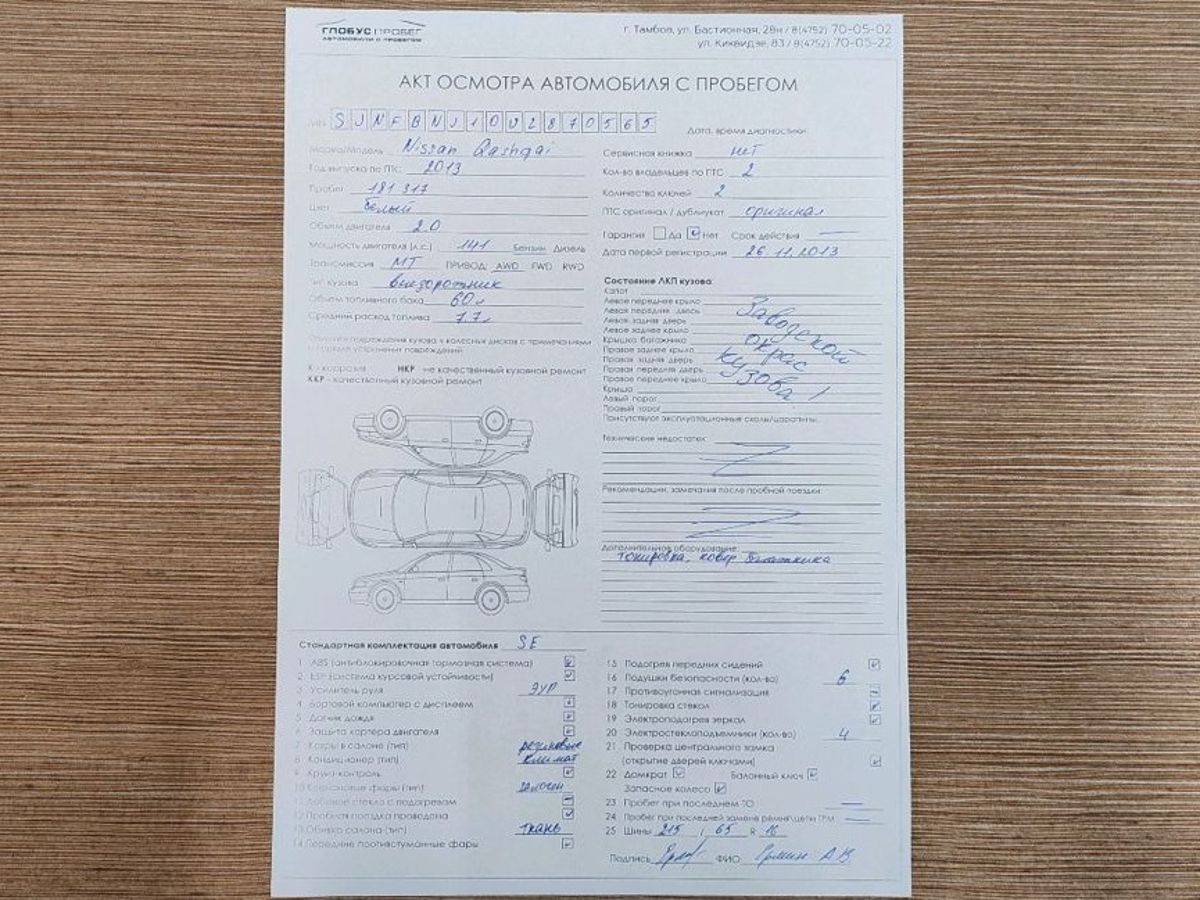 ГЛОБУС ПРОБЕГ
АВТОМОБИЛИ С ПРОБЕГОМ
г. Тамбов, ул. Бастионная, 28н / 8(4752) 70-05-02
ул. Киквидзе, 83 / 8(4752) 70-05-22
АКТ ОСМОТРА АВТОМОБИЛЯ С ПРОБЕГОМ
VIN SJNFBNJ10U2870565
Дата, время диагностики:
Марка/Модель Nissan Qashqai
Год выпуска по ПТС: 2013
Пробег 181 317
Цвет белый
Объем двигателя 2.0
Мощность двигателя (л.с.) 141 Бензин Дизель
Трансмиссия МТ ПРИВОД: AWD FWD RWD
Тип кузова внедорожник
Объем топливного бака 60 л
Средний расход топлива 7.7 л
повреждения кузова и колесных дисков с примечаниями
порядке устранения повреждений
К - коррозия НКР - не качественный кузовной ремонт
ККР - качественный кузовной ремонт
Сервисная книжка нет
Кол-во владельцев по ПТС 2
Количество ключей 2
ПТС оригинал / дубликат оригинал
Гарантия Да Нет Срок действия —
Дата первой регистрации 26.11.2013
Состояние ЛКП кузова:
Капот
Левое переднее крыло
Левая передняя дверь
Левая задняя дверь
Левое заднее крыло
Крышка багажника
Правое заднее крыло
Правая задняя дверь
Правая передняя дверь
Правое переднее крыло
Крыша
Левый порог
Правый порог
Заводской
окрас
кузова!
Присутствуют эксплуатационные сколы/царапины:
Технические недостатки:
Рекомендации, замечания после пробной поездки:
Дополнительное оборудование:
Тонировка, ковер багажника
Стандартная комплектация автомобиля SE
1 ABS (антиблокировочная тормозная система)
2 ESP (система курсовой устойчивости)
3 Усилитель руля ЭУР
4 Бортовой компьютер с дисплеем
5 Датчик дождя
6 Защита картера двигателя
7 Ковры в салоне (тип) резиновые
8 Кондиционер (тип) климат
9 Круиз-контроль
10 фары (тип) галоген
11 Лобовое стекло с подогревом
12 Пробная поездка проведена
13 Обивка салона (тип) ткань
14 Передние противотуманные фары
15 Подогрев передних сидений
16 Подушки безопасности (кол-во) 6
17 Противоугонная сигнализация
18 Тонировка стекол
19 Электроподогрев зеркал
20 Электростеклоподъемники (кол-во) 4
21 Проверка центрального замка
(открытие дверей ключами)
22 Домкрат Балонный ключ
Запасное колесо
23 Пробег при последнем ТО —
24 Пробег при последней замене ремня/цепи ГРМ —
25 Шины 215 / 65 R 16
Подпись ФИО А.В.